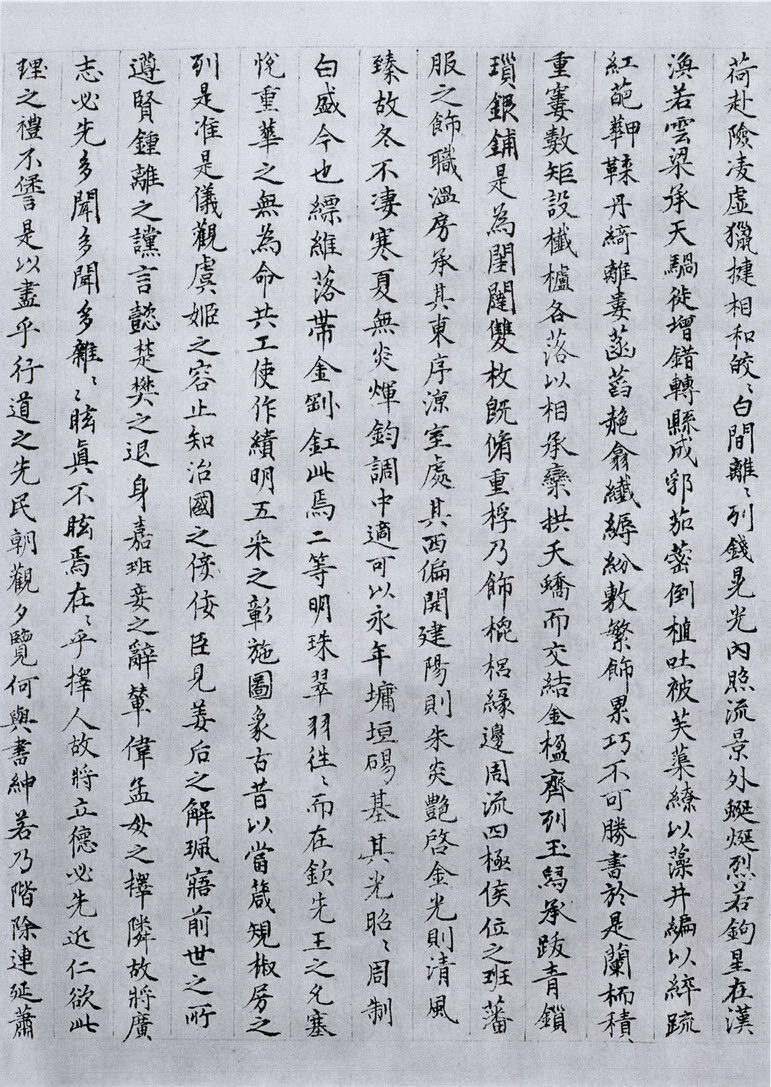 荷赴險凌虛獵揵相和皎〻白間離〻列錢晃光內照流景外蜒烻烈若鉤星在漢
渙若雲梁承天騧徙增錯轉縣成郛茄蔤倒植吐被芙蕖繚以藻井編以綷疏
紅葩鞢丹綺離婁菡萏赩翕纖縟紛敷繁飾累巧不可勝書於是蘭栭積
重窶數矩設櫼櫨各落以相承欒拱夭蟜而交結金楹齊列玉舄承跋青鎖
瑣銀鋪是為閨闥雙枚既脩重桴乃飾槐梠緣邊周流四極侯位之班藩
服之飾職溫房承其東序涼室處其西偏開建陽則朱炎艷啓金光則清風
臻故冬不淒寒夏無炎煇鈞調中適可以永年墉垣碭基其光昭〻周制
白盛今也縹維落帶金劉釭此焉二等明珠翠羽往〻而在欽先王之允塞
悅重華之無為命共工使作繢明五采之彰施圖象古昔以當箴規椒房之
列是准是儀觀虞姬之容止知治國之佞臣見姜后之解珮寤前世之所
遵賢鍾離之讜言懿楚樊之退身嘉班妾之辭輦偉孟母之擇隣故將廣
志必先多聞多聞多雜〻眩真不眩焉在〻乎擇人故將立德必先近仁欲此
理之禮不諐是以盡乎行道之先民朝觀夕覽何與書紳若乃階除連延蕭